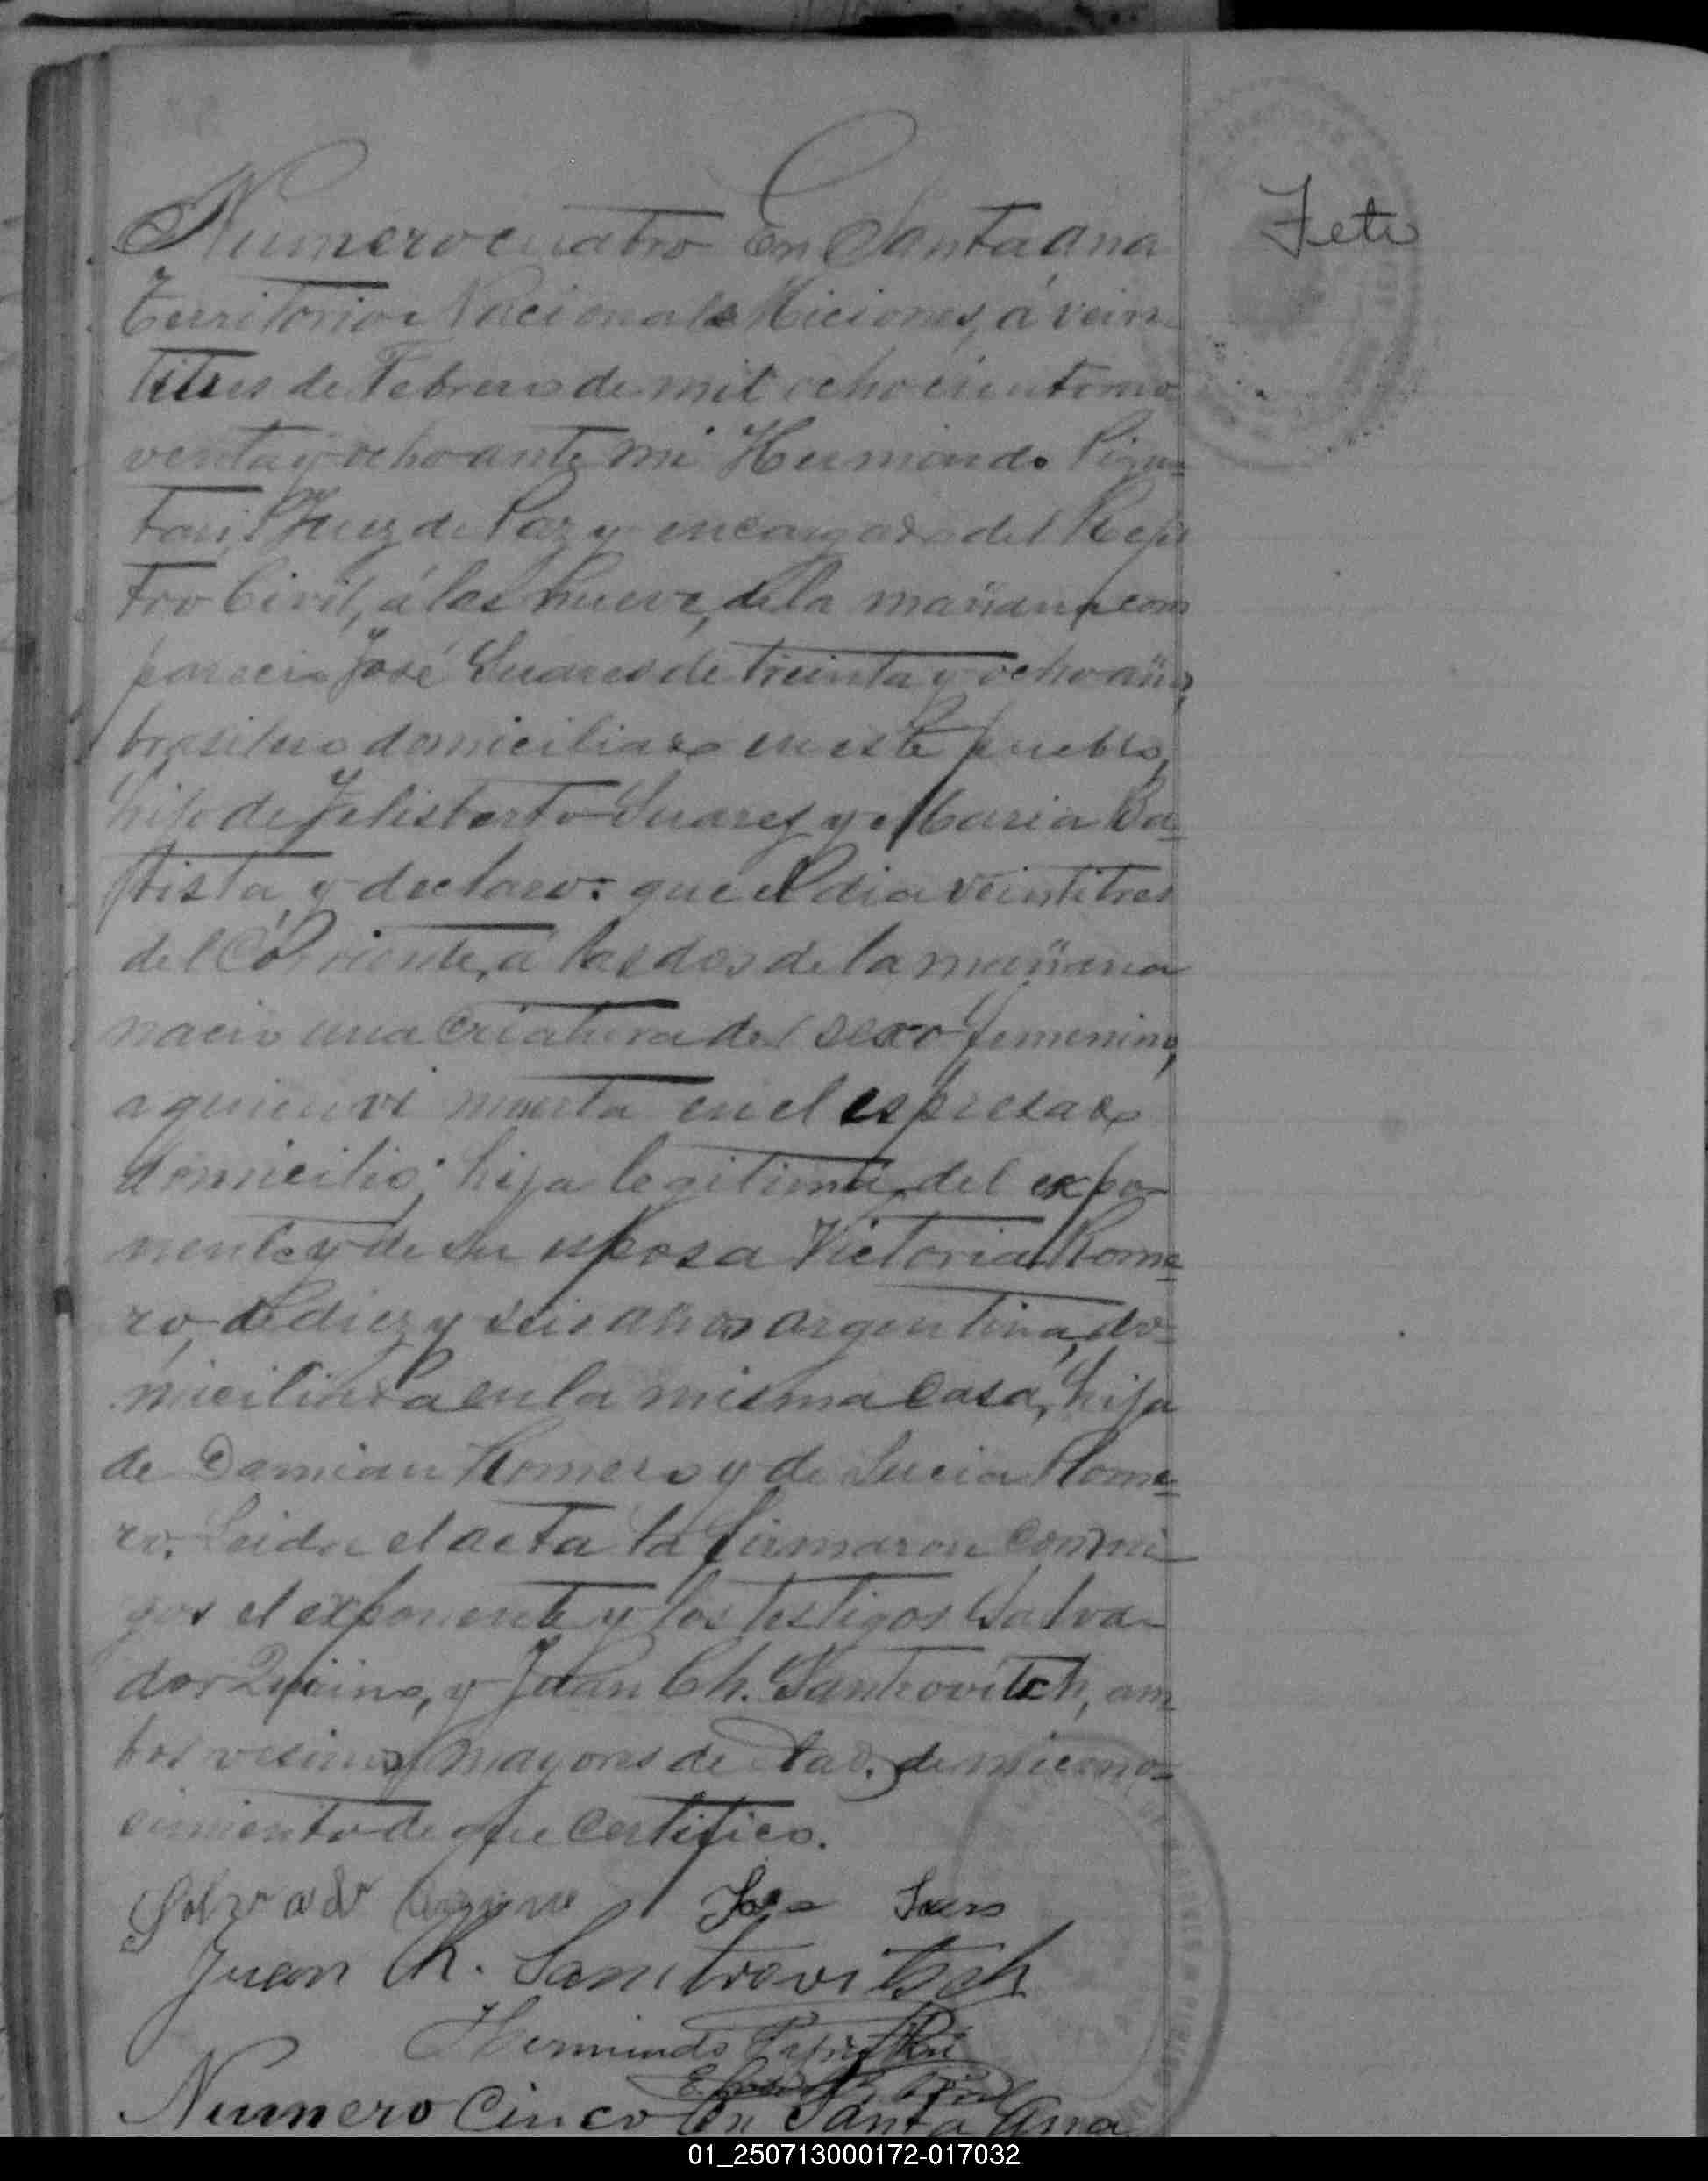 Numero cuatro En Santa ana
Territorio Nacional de Miciones, á vein
titres de Febrero de mil ochociento no
venta y ocho ante mi Hermindo
Juez de Paz y encargado del Regis
tro Civil, á las nueve, de la mañana com
parecio José Suares de treinta y ocho años,
brasilero domiciliado en este pueblo,
hijo de Felisberto Suares y Maria Ba-
ptista y declaro: que el dia veintitres
del Corriente, á las dos de la mañana
nacio una criatura del sexo femenino,
a quien vi muerta en el espresado
domicilio; hija legitima, del expo-
nente y de su esposa Victoria Rome-
ro, de diez y seis años argentina, do-
miciliada en la misma casa, hija
de Damian Romero y de Lucia Rome-
ro. Leida el acta la firmaron conmi-
gos el exponente y los testigos Salva-
dor y Juan Ch. Santrovitch, am
bos vesinos mayores de edad. de mi cono-
cimiento de que certifico.
Salvador
Juan Ch. Santrovitsch
Hermindo
Numero Cinco En Santa Ana
Feto
01_250713000172-017032